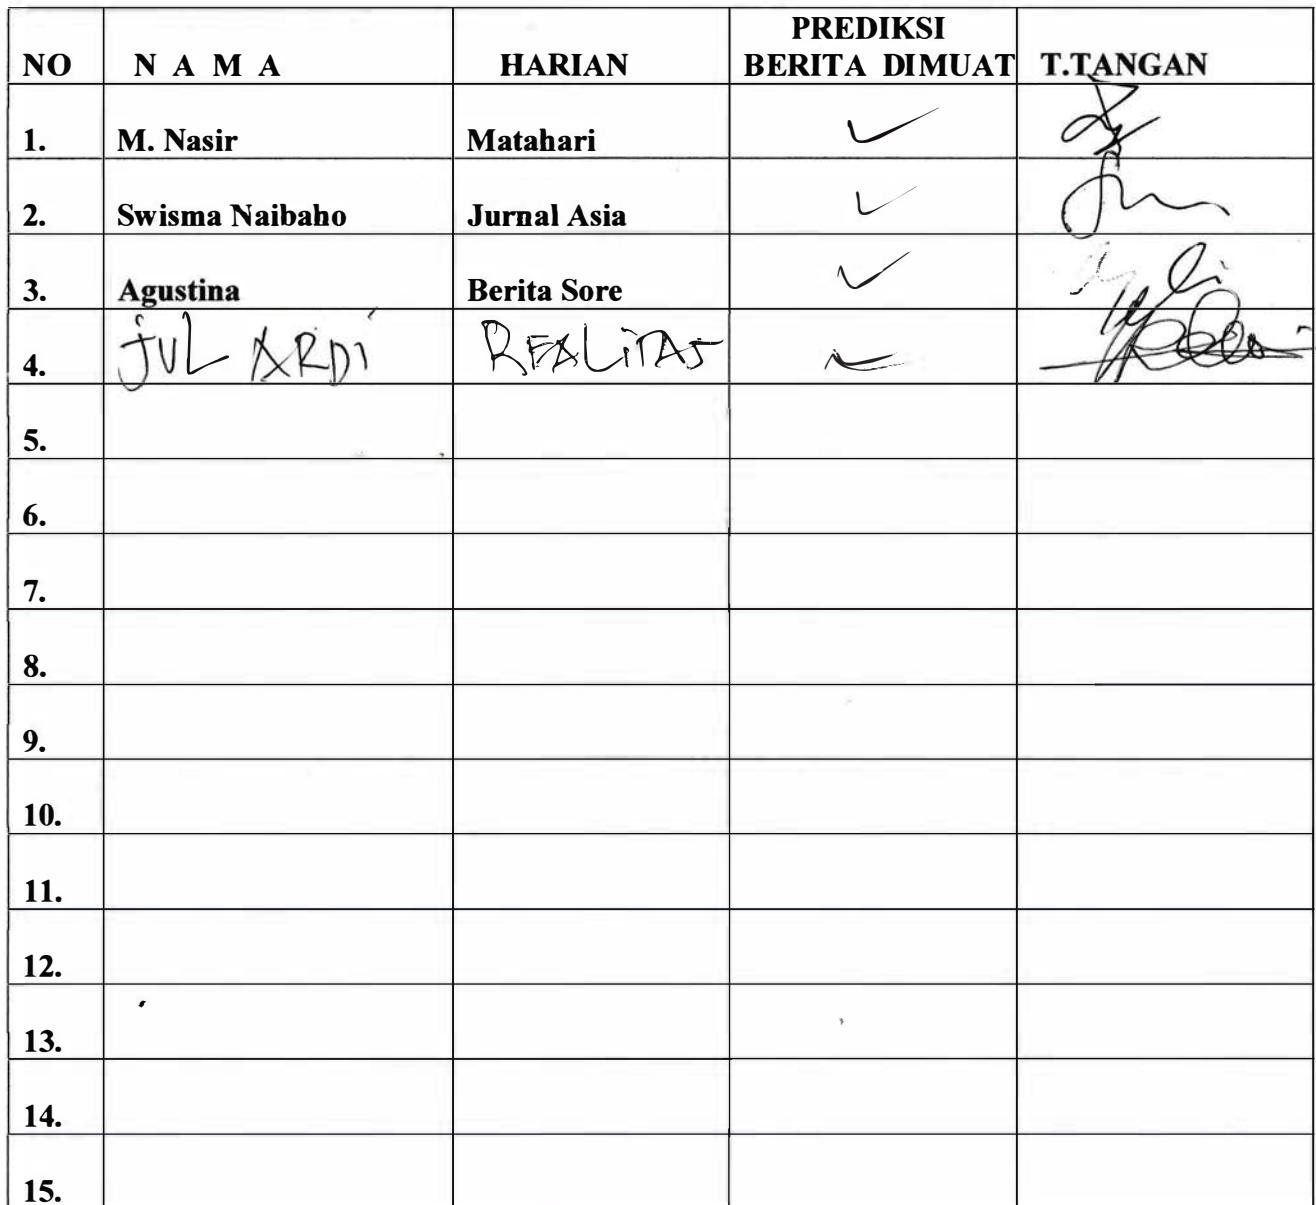 PREDIKSI
NO N A M A HARIAN BERITA DIMUAT T.TANGAN
1. M. Nasir Matahari ✓
2. Swisma Naibaho Jurnal Asia ✓
3. Agustina Berita Sore ✓
4. JUL ARDI REALITAS ✓
5.
6.
7.
8.
9.
10.
11.
12.
13.
14.
15.